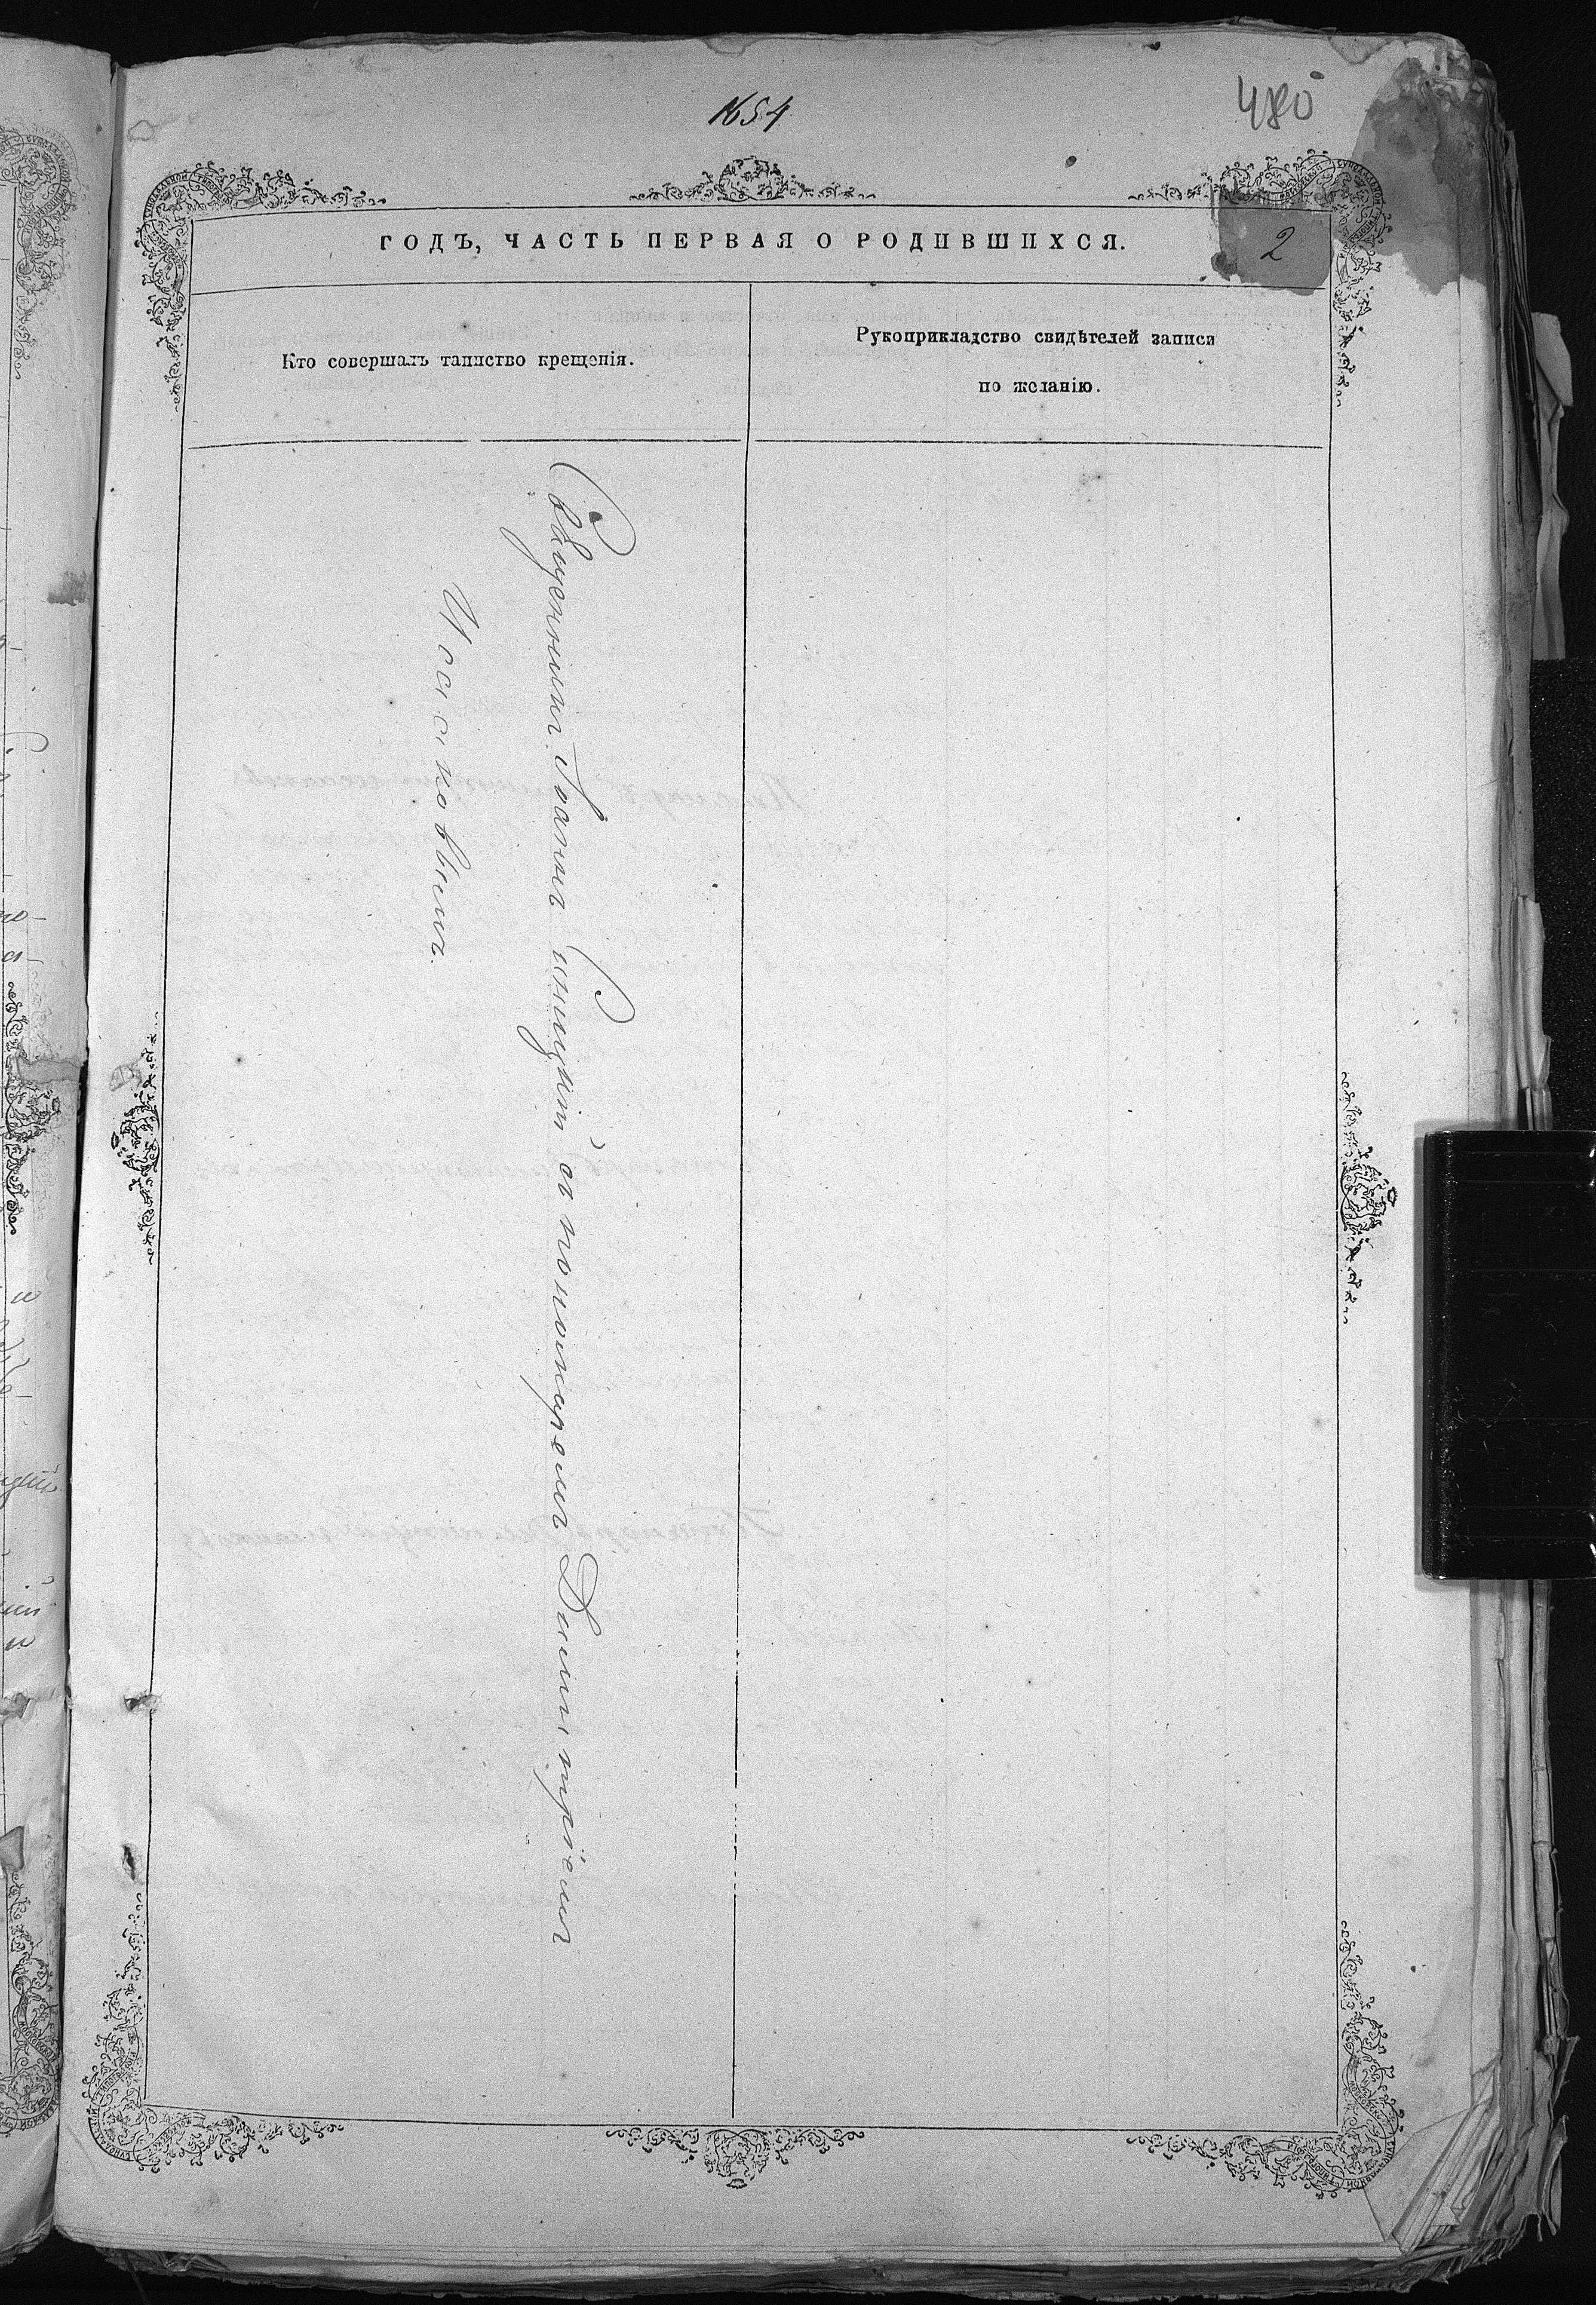 1654
480
ГОДЪ, ЧАСТЬ ПЕРВАЯ О РОДИВШИХСЯ.
2
Кто совершалъ таинство крещенія.
Рукоприкладство свидѣтелей записи
по желанію.
Священникъ Іоаннъ Синицкій съ пономаремъ Димитріемъ